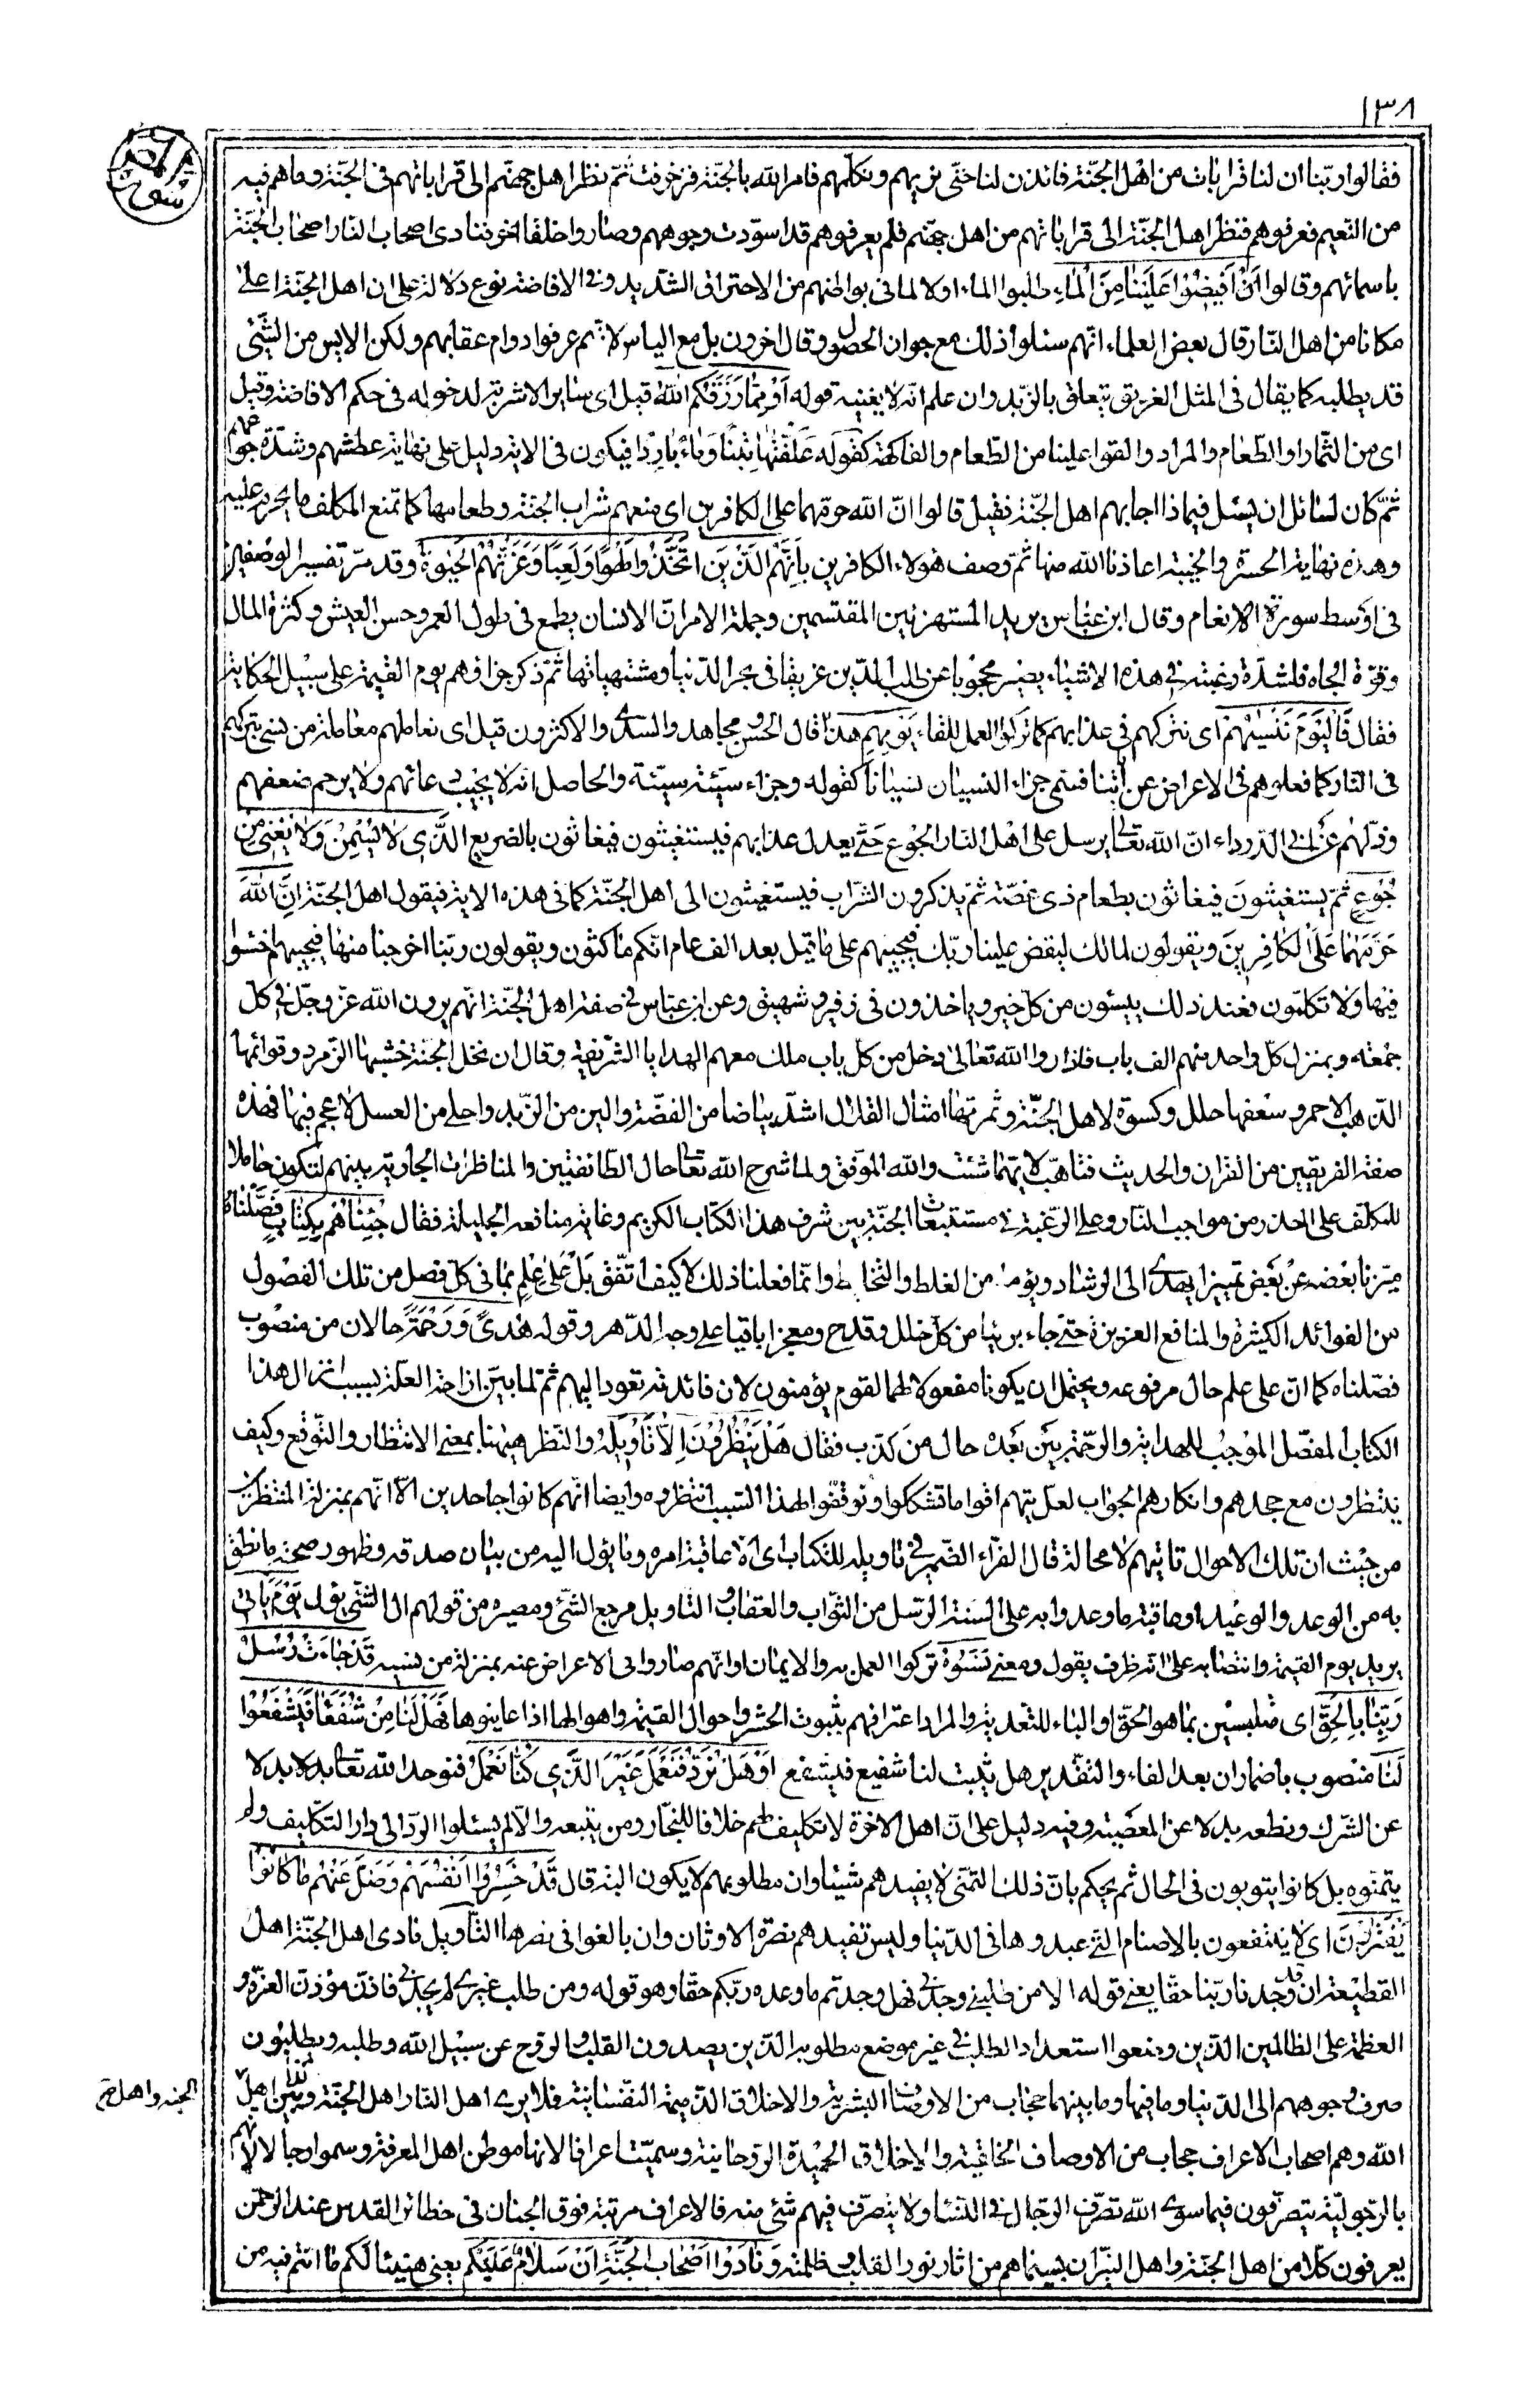 ١٣٨
فقالوا ربّنا ان لنا قرابات من اهل الجنّة فائذن لنا حتّى نريهم ونكلّمهم فامر الله بالجنّة فزخرفت ثمّ نظر اهل جهنّم الى قراباتهم فى الجنّة وماهم فيه
من النّعيم فعرفوهم فنظر اهل الجنّة الى قراباتهم من اهل جهنم فلم يعرفوهم قد اسوّدت وجوههم وصاروا خلقا اخر فنادى اصحاب النّار اصحاب الجنّة
باسمائهم وقالوا اَنْ اَفيضُوْا عَلَيْنا مِنَ الْماءِ طلبوا الماء اولا لما فى بواطنهم من الاحتراق الشّديد وفى الافاضة نوع دلالة على ان اهل الجنّة اعلى
مكانا من اهل النّار قال بعض العلماء انهم سئلوا ذلك مع جواز الحصول وقال اخرون بل مع الياس لانّهم عرفوا دوام عقابهم ولكن الايس من الشّئ
قد يطلبه كما يقال فى المثل الغريق يتعلق بالزّبد وان علم انّه لا يغنيه قوله اَوْ مِمّا رَزَقَكُم اللهُ قيل اى ساير الاشربة لدخوله فى حكم الافاضة وقيل
اى من الثّمار او الطّعام والمراد والقوا علينا من الطّعام والفاكهة كقوله عَلَفْتُها تِبْنًا وَماءً بارِدًا فيكون فى الاية دليل على نهاية عطشهم وشدّة جوعهم
ثمّ كان لسائل ان يسئل فيماذا اجابهم اهل الجنّة فقيل قالوا انّ الله حرّمهما على الكافرين اى منعهم شراب الجنّة وطعامها كما تمنع المكلف ما يحرم عليه
وهذه نهاية الحسرة والخيبة اعاذنا الله منها ثمّ وصف هؤلاء الكافرين بانّهم الَّذينَ اتَّخَذُوا لَهْوًا وَلَعِبًا وَغَرَّتْهُمُ الْحَيٰوةُ وقد مرّ تفسير الوصفين
فى اوسط سورة الانعام وقال ابن عبّاس يريد المستهزئين المقتسمين وجملة الامر انّ الانسان يطمع فى طول العمر وحسن العيش وكثرة المال
وقوّة الجاه فلشدّة رغبته فى هذه الاشياء يصير محجوبا عن طلب الدّين غريقا فى بحر الدّنيا ومشتهياتها ثمّ ذكر جزاؤهم يوم القيمة على سبيل الحكاية
فقال فَالْيَوْمَ نَنْسيٰهُمْ اى نتركهم فى عذابهم كما تركوا العمل للقاء يَوْمِهِم هذا قال الحسن ومجاهد والسدى والاكثرون قيل اى نعاملهم معاملة من نسى بتركهم
فى النّار كما فعلوا هم فى الاعراض عن اٰيٰتنا فسمى جزاء النسيان نسيانا كقوله وجزاء سيّئة سيّئة والحاصل انه لا يجيب دعائهم ولا يرحم ضعفهم
وذلهم عن ابى الدّرداء انّ الله تعالى يرسل على اهل النار الجوع حتّى يعدل عذابهم فيستغيثون فيغاثون بالضريع الَّذى لا يُسْمِنُ وَلا يُغْنى مِن
جُوْعٍ ثمّ يستغيثون فيغاثون بطعام ذى غصّة ثم يذكرون الشّراب فيستغيثون الى اهل الجنّة كما فى هذه الاية فيقول اهل الجنّة اِنَّ اللهَ
حَرَّمَهُما عَلَى الْكافِرينَ ويقولون لمالك ليقض علينا ربّك فيجيبهم على ما قيل بعد الف عام انكم ماكثون ويقولون ربّنا اخرجنا منها فيجيبهم اخسئوا
فيها ولا تكلّمون فعند ذلك ييئسون من كلّ خير وياخذون فى زفير وشهيق وعن ابن عبّاس فى صفة اهل الجنّة انّهم يرون الله عزّ وجلّ فى كل
جمعة وبمنزل كلّ واحد منهم الف باب فاذا روا الله تعالى دخل من كل باب ملك معهم الهدايا الشّريفة وقال ان نخل الجنة خشبها الزّمرد وقوائمها
الذّهب الاحمر وسعفها حلل وكسوة لاهل الجنّة وثمرتها امثال القلال اشدّ بياضا من الفضّة والين من الزّبد واحلى من العسل لا عجم فيها فهذه
صفة الفريقين من القران والحديث فتاهب لايّهما شئت والله الموفق ولما شرح الله تعالى حال الطّائفتين والمناظرات الجارية بينهم لتكون حاملا
للمكلف على الحذر من مواجب النار وعلى الرّغبة فى مستتبعات الجنّة بين شرف هذا الكتاب الكريم وغاية منافعه الجليلة فقال جِئْناهُمْ بِكِتابٍ فَصَّلْناهُ
ميّزنا بعضه عن بعض تمييزا يهدى الى الرشاد ويؤمن من الغلط والتّخابط وانّما فعلنا ذلك لا كيف اتّفق بَلْ عَلٰى عِلْمٍ بما فى كلّ فصل من تلك الفصول
من الفوائد الكثيرة والمنافع العزيزة حتى جاء بريئا من كلّ خلل وقدح ومعجزا باقيا على وجه الدّهر وقوله هُدىً وَرَحْمَةً حالان من منصوب
فصّلناه كما انّ على علم حال مرفوعه ويحتمل ان يكونا مفعولا لهما لقوم يؤمنون لان فائدته تعود اليهم ثم لما بيّن ازاحة العلّة بسبب انزال هذا
الكتاب المفصّل الموجب للهداية والرّحمة بيّن بعده حال من كذّب فقال هَلْ يَنْظُرُوْنَ اِلاّ تَاْويلَهُ والنّظر هيهنا بمعنى الانتظار والتّوقع وكيف
ينتظرون مع جحدهم وانكارهم الجواب لعلّ فيهم اقواما تشككوا وتوقفوا لهذا السّبب انتظروه وايضا انّهم كانوا جاحدين الّا انّهم بمنزلة المنتظرين
من حيث ان تلك الاحوال تاتيهم لا محالة قال الفرّاء الضّمير فى تاويله للكتاب اى الّا عاقبة امره وما يؤل اليه من بيان صدقه وظهور صحة ما نطق
به من الوعد والوعيد او عاقبة ما وعدوا به على السنة الرّسل من الثّواب والعقاب والتاويل مرجع الشّئ ومصيره من قولهم ال الشّئ يؤل يَوْمَ يَاْتى
يريد يوم القيمة وانتصابه على انّه ظرف يقول ومعنى نَسُوْهُ تركوا العمل به والايمان او انّهم صاروا فى الاعراض عنه بمنزلة من نسيه قَدْ جاءَتْ رُسُلُ
رَبِّنا بِالْحَقِّ اى ملبسين بما هو الحقّ او الباء للتعدية والمراد اعترافهم بثبوت الحشر واحوال القيمة واهوالها اذا عاينوها فَهَلْ لَنا مِنْ شُفَعاءَ فَيَشْفَعُوْا
لَنا منصوب باضمار ان بعد الفاء والتقدير هل يثبت لنا شفيع فيشفع اَوْ هَلْ نُرَدُّ فَنَعْمَلَ غَيْرَ الَّذى كُنّا نَعْمَلُ فنوحد الله تعالى بدلا
عن الشرك ونطعه بدلا عن المعصية وفيه دليل على انّ اهل الاخرة لا تكليف لهم خلافا للنجّار ومن يتبعه والّا لم يسئلوا الردّ الى دار التكليف ولم
يتمنّوه بل كانوا يتوبون فى الحال ثم يحكم بانّ ذلك التمنّى لا يفيدهم شيئا وان مطلوبهم لا يكون البتة قال قَدْ خَسِرُوْا اَنْفُسَهُمْ وَضَلَّ عَنْهُم ما كانُوْا
يَفْتَرُوْنَ اى لا ينتفعون بالاصنام التى عبدوها فى الدّنيا وليس تفيدهم نصرة الاوثان وان بالغوا فى نصرها التّاويل نادى اهل الجنّة اهل
القطيعة ان قد وجدنا ربّنا حقّا يعنى قوله الا من طلبنى وجدنى فهل وجدتم ما وعده ربّكم حقّا وهو قوله ومن طلب غيرى لم يجدنى فاذّن مؤذن العزّة و
العظمة على الظالمين الذّين وضعوا استعداد الطلب فى غير موضع مطلوبه الّذين يصدون القلب والروح عن سبيل الله وطلبه ويطلبون
صرف وجوههم الى الدّنيا وما فيها وما بينهما حجاب من الاوصاف البشرية والاخلاق الذّميمة النّفسانية فلا يرى اهل النار اهل الجنّة وبين اهل
الجنة واهل
الله وهم اصحاب الاعراف حجاب من الاوصاف الخلقية والاخلاق الحميدة الروحانية وسميّت اعرافا لانها موطن اهل المعرفة وسموا رجالا لانّهم
بالرجوليّة يتصرّفون فيما سوى الله تصرّف الرّجال فى النّساء ولا يتصرّف فيهم شئ منه فالاعراف مرتبة فوق الجنان فى حظائر القدس عند الرّحمن
يعرفون كلّا من اهل الجنة واهل النيران بسيماهم من اثار نور القلب وظلمته وَنادَوْا اَصْحابَ الْجَنَّةِ اَنْ سَلامٌ عَلَيْكُم يعنى هنيئا لكم ما انتم فيه من